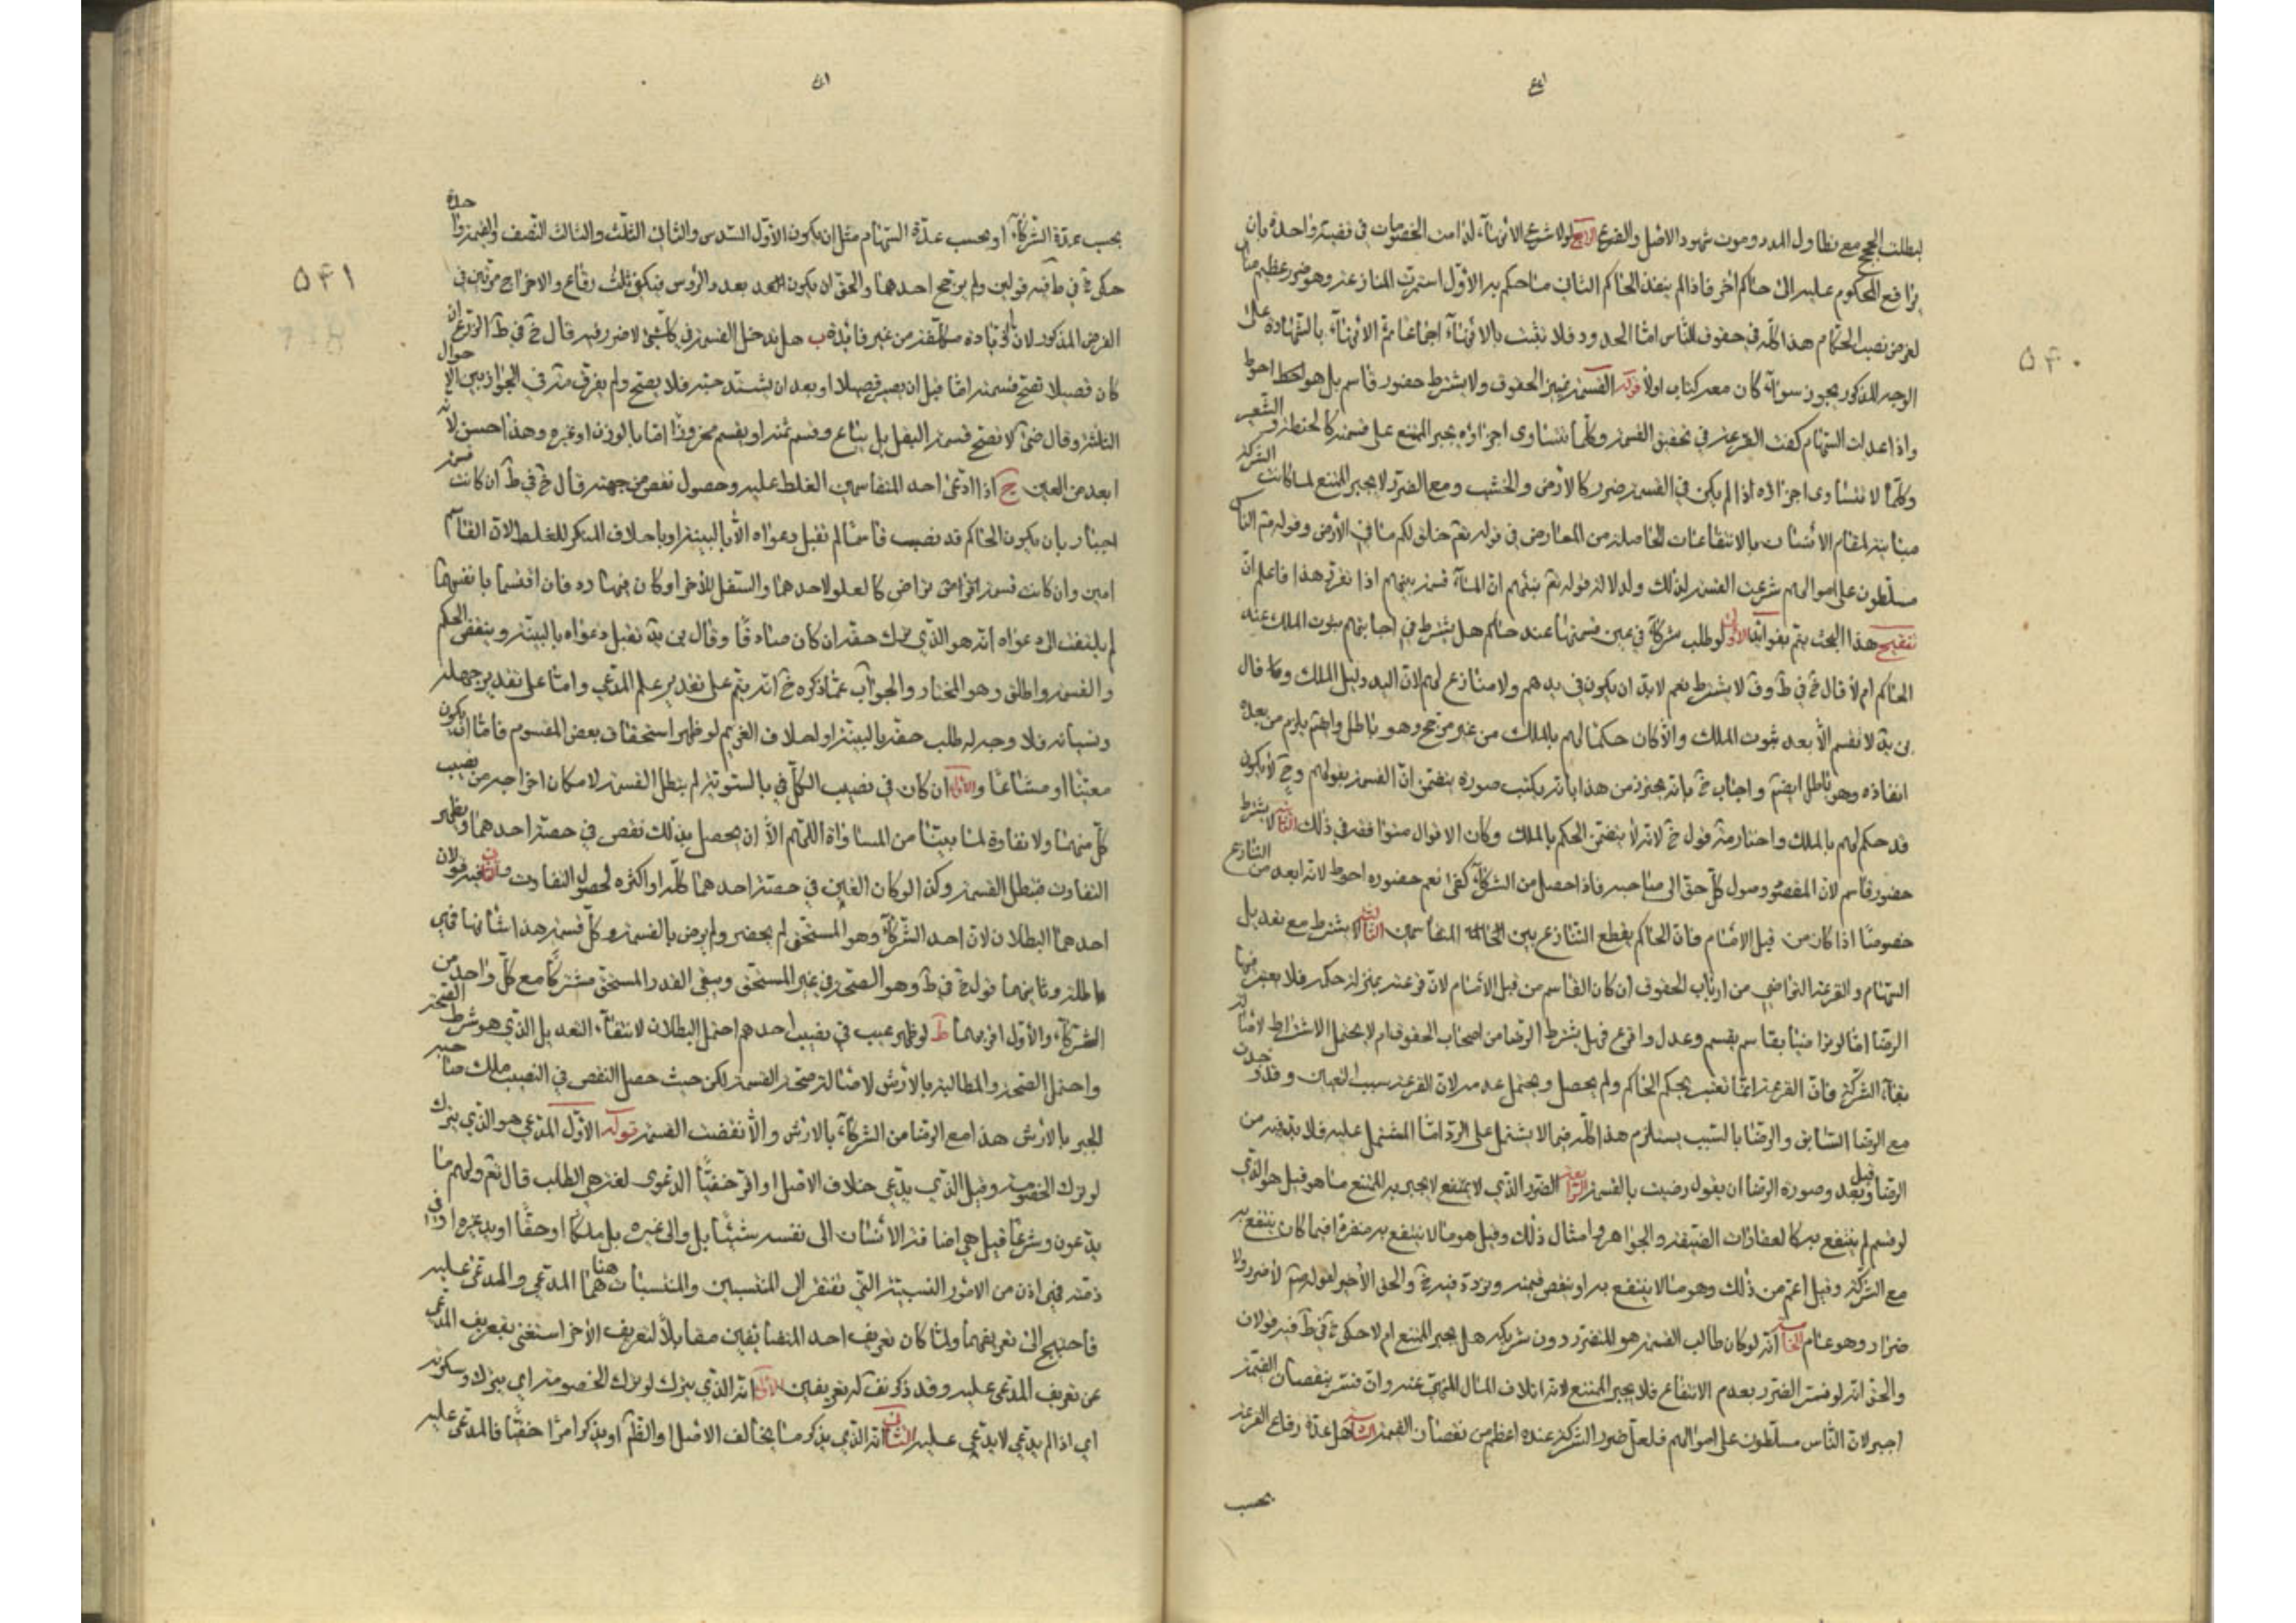 لبطلت الحجج مع تطاول المدد وموت شهود الاصل والفرع الرابع لولا شرع الانهاء لدامت الخصومات في قضية واحدة بان
يرافع المحكوم عليه الى حاكم اخر فاذا لم ينفذ الحاكم الثاني ما حكم به الأول استمرت المنازعة وهو ضرر عظيم مناف
لغرض نصب الحكام هذا كله في حقوق الناس امّا الحدود فلا تثبت بالانهاء اجماعا ثم الانهاء بالشهادة على
الوجه المذكور يجوز سواء كان معه كتاب اولا قوله القسمة تمييز الحقوق ولا يشترط حضور قاسم بل هو احوط
واذا عدلت السهام كفت القرعة في تحقيق القسمة وكلما تتساوى اجزاؤه يجبر الممتنع على قسمته كالحنطة والشعير
وكلما لا تتساوى اجزاؤه اذا لم يكن في القسمة ضرر كالأرض والخشب ومع الضرر لا يجبر الممتنع لما كانت الشركة
مباينة لمقام الانسان بالانتفاعات الحاصلة من المعارض في قوله تعم خلق لكم ما في الأرض وقوله صم الناس
مسلطون على اموالهم شرعت القسمة لذلك ولدلالة قوله تعم نبئهم ان الماء قسمة بينهم اذا تقرر هذا فاعلم ان
تنقيح هذا البحث يتم بفوائد الأولى لو طلب شركاء في عين قسمتها عند حاكم هل يشترط في اجابتهم ثبوت الملك عند
الحاكم ام لا قال خ في ط وف لا يشترط نعم لا بد ان يكون في يدهم ولا منازع لهم لان اليد دليل الملك وقال
بن بة لا تقسم الا بعد ثبوت الملك والا كان حكما لهم بالملك من غير مرجح وهو باطل وايضم يلزم من بعده
انفاذه وهو باطل ايضم واجاب خ بانه يحترز من هذا بان يكتب صورة يتضمن ان القسمة بقولهم وح لا يكون
قد حكم لهم بالملك واختار مة قول خ لانه لا يتضمن الحكم بالملك وكان الاقوال متوافقة في ذلك الثانية لا يشترط
حضور قاسم لان المقصود وصول كل حق الى صاحبه فاذا حصل من الشركاء كفى نعم حضوره احوط لانه ابعد من التنازع
خصوصا اذا كان من قبل الامام فان الحاكم يقطع التنازع بين المتقاسمين الثالثة لا يشترط مع تعديل
السهام والقرعة التراضي من ارباب الحقوق ان كان القاسم من قبل الامام لان قرعته بمنزلة حكمه فلا يعتبر فيها
الرضا امّا لو تراضيا بقاسم يقسم وعدل واقرع فهل يشترط الرضا من اصحاب الحقوق ام لا يحتمل الاشتراط لاصالة
بقاء الشركة فان القرعة انما تعتبر بحكم الحاكم ولم يحصل ويحتمل عدمه لان القرعة سبب التعيين وقد وجدت
مع الرضا السابق والرضا بالسبب يستلزم هذا كله فيما لا يشتمل على الرد امّا المشتمل عليه فلا بد فيه من
الرضا قبل وبعد وصورة الرضا ان يقول رضيت بالقسمة الرابعة الضرر الذي لا يجبر به الممتنع ما هو قيل هو الذي
لو قسم لم ينتفع به كالعقارات الضيقة والجواهر وامثال ذلك وقيل هو ما لا ينتفع به منفردا فيما كان ينتفع به
مع الشركة وقيل اعم من ذلك وهو ما لا ينتفع به او ينقص قيمته وتردد فيه خ والحق الأخير لقوله صم لا ضرر ولا
ضرار وهو عام الخامسة انه لو كان طالب القسمة هو المتضرر دون شريكه هل يجبر الممتنع ام لا حكى خ في ط فيه قولان
والحق انه لو فسر الضرر بعدم الانتفاع فلا يجبر الممتنع لانه اتلاف المال المنهي عنه وان فسر بنقصان القيمة
اجبر لان الناس مسلطون على اموالهم فلعل ضرر الشركة عنده اعظم من نقصان القيمة السادسة هل عدة رقاع القرعة
بحسب
بحسب عدة الشركاء او بحسب عدة السهام مثل ان يكون الأول السدس والثاني الثلث والثالث النصف والقيمة واحدة
حكى خ في ط فيه قولين ولم يرجح احدهما والحق ان يكون العدد بعدد الرؤس فيكفي ثلث رقاع والاخراج مرتين في
الفرض المذكور لان الزيادة كلفة من غير فائدة ب هل تدخل القسمة في كلما لا ضرر فيه قال خ في ط الزرع ان
كان فصيلا تصح قسمته امّا قبل ان يصير فصيلا او بعد ان يشتد حبه فلا يصح ولم يفرق مة في الجواز بين الأحوال
الثلثة وقال ض لا تصح قسمة البقل بل يباع ويقسم ثمنه او يقسم مجزوزا امّا بالوزن او غيره وهذا احسن لأنه
ابعد من الغبن ج اذا ادعى احد المتقاسمين الغلط عليه وحصول نقص من جهته قال خ في ط ان كانت قسمة
اجبار بان يكون الحاكم قد نصب قاسما لم تقبل دعواه الا بالبينة او باحلاف المنكر للغلط لان القاسم
امين وان كانت قسمة تراض كالعلو لاحدهما والسفل للأخر او كان فيها رد فان اقتسما بانفسهما
لم يلتفت الى دعواه انه هو الذي ترك حقه ان كان صادقا وقال بن بة تقبل دعواه بالبينة وينقض الحكم
والقسمة واطلق وهو المختار والجواب عما ذكره خ انه يتم على تقدير علم المدعي وامّا على تقدير جهله
ونسيانه فلا وجه له طلب حقه بالبينة او احلاف الغريم لو ظهر استحقاق بعض المقسوم فامّا ان يكون
معينا او مشاعا والأول ان كان في نصيب الكل في بالسوية لم تبطل القسمة لامكان اخراجه من نصيب
كل منهما ولا تفاوت لما بينا من المساواة اللهم الا ان يحصل بذلك نقص في حصة احدهما ويظهر
التفاوت فتبطل القسمة وكذا لو كان الغبن في حصة احدهما كله او اكثره لحصول التفاوت والثاني فيه قولان
احدهما البطلان لان احد الشركاء وهو المستحق لم يحضر ولم يرض بالقسمة وكل قسمة هذا شأنها فهي
باطلة وثانيهما قوله في ط وهو الصحة في غير المستحق ويبقى القدر المستحق مشتركا مع كل واحد من
الشركاء والأول اقربهما ط لو ظهر عيب في نصيب احدهم احتمل البطلان لانتفاء التعديل الذي هو شرط الصحة
واحتمل الصحة والمطالبة بالأرش لاصالة صحة القسمة لكن حيث حصل النقص في النصيب ملك صاحبه
الجبر بالأرش هذا مع الرضا من الشركاء بالارش والا نقضت القسمة قوله الأول المدعي هو الذي يترك
لو ترك الخصومة وقيل الذي يدعي خلاف الاصل او امرا خفيا الدعوى لغة هي الطلب قال تعم ولهم ما
يدعون وشرعا قيل هي اضافة الانسان الى نفسه شيئا بل والى غيره بل ملكا او حقا او بيد غيره او في
ذمته فهي اذن من الامور النسبية التي تفتقر الى المنتسبين والمنتسبان هنا هما المدعي والمدعى عليه
فاحتيج الى تعريفهما ولما كان تعريف احد المتقابلين مقابلا لتعريف الأخر استغنى بتعريف المدعي
عن تعريف المدعى عليه وقد ذكر له تعريفين الأول انه الذي يترك لو ترك الخصومة اي يترك وسكوته
اي اذا لم يدعي لا يدعي عليه الثاني انه الذي يذكر ما يخالف الاصل او الظم او يذكر امرا خفيا فالمدعى عليه
۵۴۰
۵۴۱